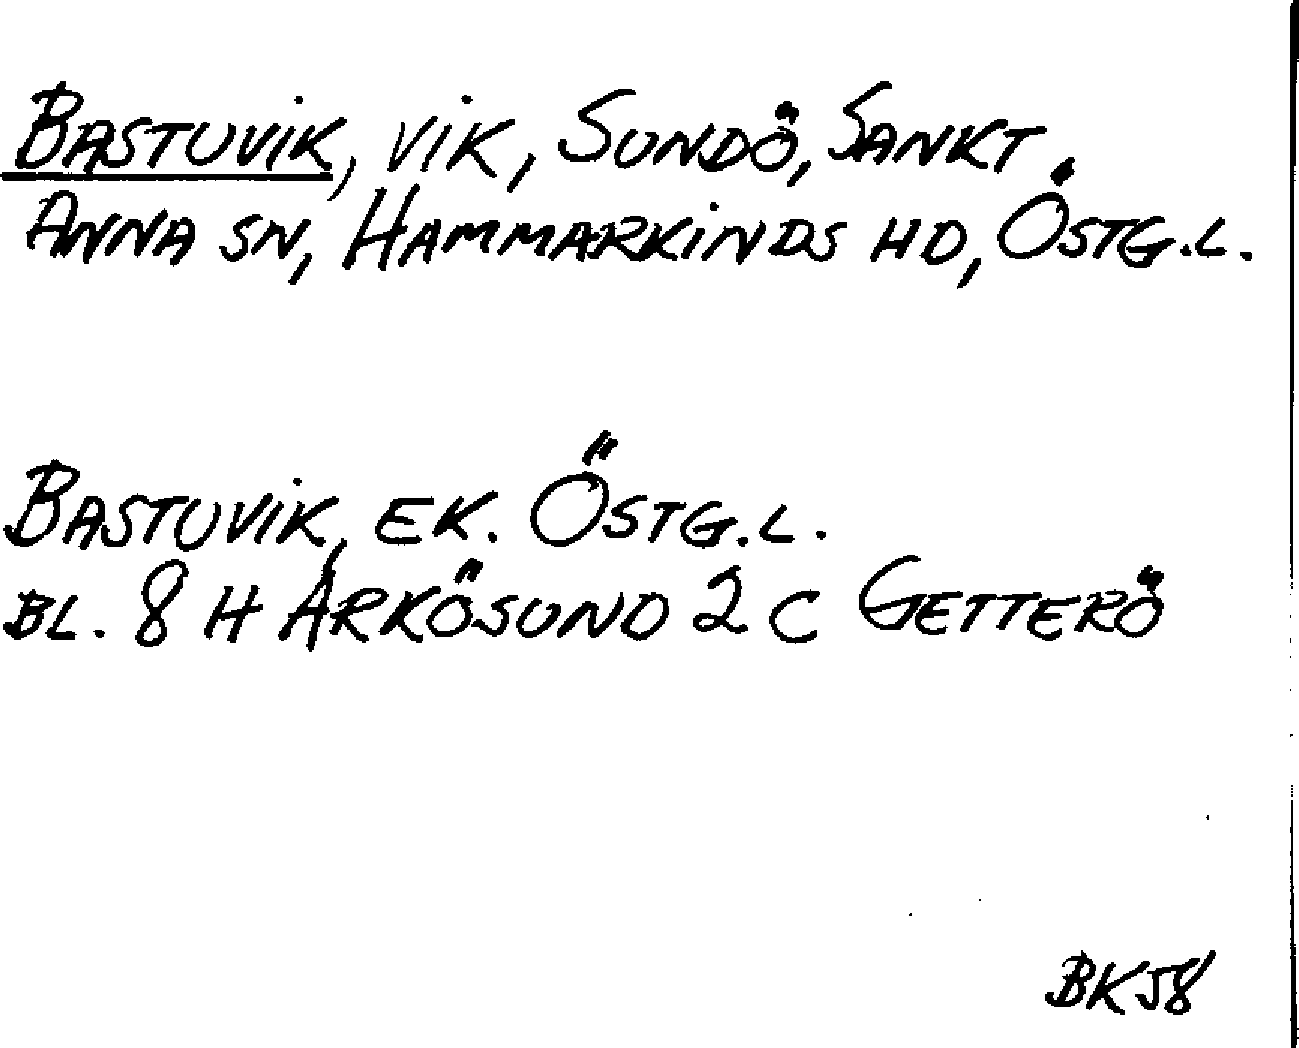 BASTUVIK, VIK, SUNDÖ, SANKT
ANNA SN, HAMMARKINDS HD, ÖSTG.L.
BASTUVIK, EK. ÖSTG.L.
BL. 8 H ARKÖSUND 2 C GETTERÖ
BK58